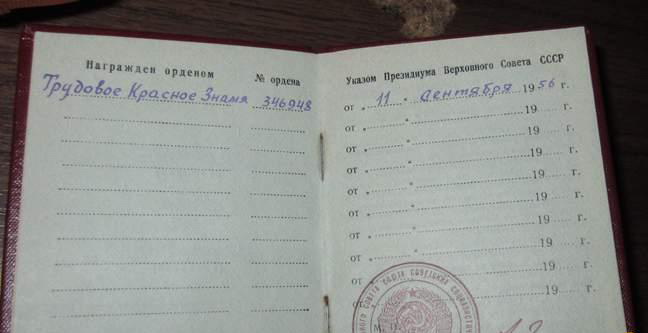 Награжден орденом
№ ордена
Трудовое Красное Знамя 346948
Указом Президиума Верховного Совета СССР
от „ 11 " сентября 1956 г.
от „ " 19 г.
от „ " 19 г.
от „ " 19 г.
от „ " 19 г.
от „ " 19 г.
от „ " 19 г.
от „ " 19 г.
от 19 г.
19 г.
ного Совета Союза Советских Социалистических
М. П.